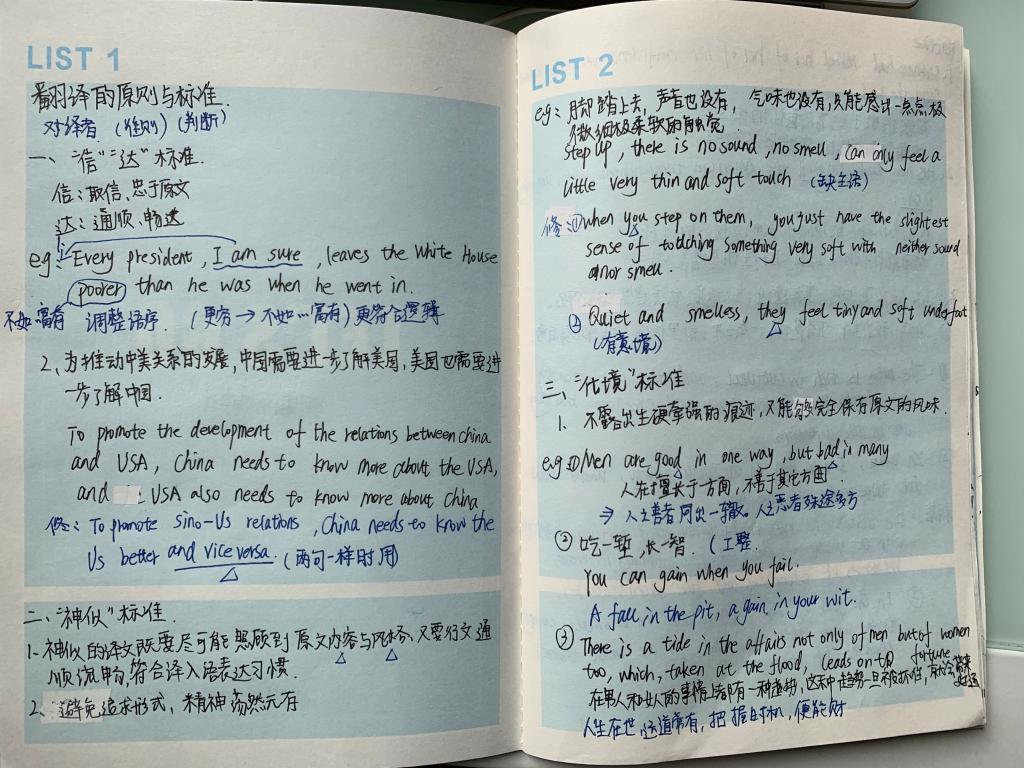 LIST 1
翻译的原则与标准.
对译者 (准则) (判断)
一、"信""达"标准.
信：取信、忠于原文
达：通顺、畅达
eg: Every president, I am sure, leaves the White House
poorer than he was when he went in.
不如富有 调整语序. (更穷→不如…富有) 更符合逻辑
2、为推动中美关系的发展，中国需要进一步了解美国，美国也需要进
一步了解中国.
To promote the development of the relations between China
and USA, China needs to know more about the USA,
and USA also needs to know more about China.
修：To promote Sino-Us relations, China needs to know the
Us better and vice versa. (两句一样时用)
二、"神似"标准.
1. 神似的译文既要尽可能照顾到原文内容与风格，又要行文通
顺流畅，符合译入语表达习惯.
2、避免追求形式，精神荡然无存
LIST 2
eg：用脚踏上去，声音也没有，气味也没有，只能感出一点点极
微细极柔软的触觉.
Step up, there is no sound, no smell, can only feel a
little very thin and soft touch (缺主语)
修：①When you step on them, you just have the slightest
sense of touching something very soft with neither sound
nor smell.
② Quiet and smelless, they feel tiny and soft underfoot
(有意境)
三、"化境"标准
1. 不露出生硬牵强的痕迹，又能够完全保有原文的风味.
eg ①Men are good in one way, but bad in many
人在擅长于方面，不善于其它方面.
⇒ 人之善者同出一辙。人之恶者殊途多方
② 吃一堑，长一智. (工整.
You can gain when you fail.
A fall in the pit, a gain in your wit.
③ There is a tide in the affairs not only of men but of women
too, which, taken at the flood, leads on to fortune
在男人和女人的事情上都有一种趋势，这种趋势一旦被抓住，
人生在世，达道常有，把握时机，便能财